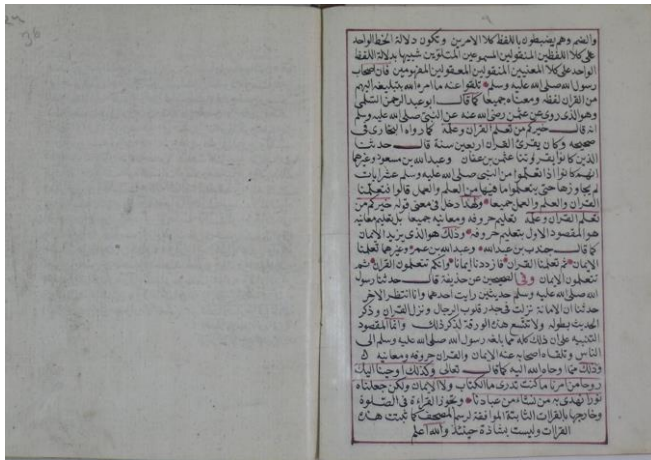 والضم وهم يضبطون باللفظ كلا الامرين وتكون دلالة الخط الواحد
على كلا اللفظين المنقولين المسموعين المتلوين شبيها بدلالة اللفظ
الواحد على كلا المعنيين المنقولين المعقولين المفهومين فان اصحاب
رسول الله صلى الله عليه وسلم تلقوا عنه ما امره الله بتبليغه اليهم
من القران لفظه ومعناه جميعا كما قال ابو عبد الرحمن السلمي
وهو الذي روى عن عثمن رضي الله عنه عن النبي صلى الله عليه وسلم
انه قال خيركم من تعلم القران وعلمه كما رواه البخارى فى
صحيحه وكان يقرئ القران اربعين سنة قال حدثنا
الذين كانوا يقرئوننا عثمن بن عفان وعبد الله بن مسعود وغيرهما
انهم كانوا اذا تعلموا من النبي صلى الله عليه وسلم عشر ايات
لم يجاوزها حتى يتعلموا ما فيها من العلم والعمل قالوا فتعلمنا
القران والعلم والعمل جميعا ولهذا دخل فى معنى قوله خيركم من
تعلم القران وعلمه تعليم حروفه ومعانيه جميعا بل تعليم معانيه
هو المقصود الاول بتعليم حروفه وذلك هو الذى يزيد الايمان
كما قال جندب بن عبد الله وعبد الله بن عمر وغيرهما تعلمنا
الايمان ثم تعلمنا القران فازددنا ايمانا وانكم تتعلمون القران ثم
تتعلمون الايمان وفى الصحيحين عن حذيفة قال حدثنا رسول
الله صلى الله عليه وسلم حديثين رايت احدهما وانا انتظر الاخر
حدثنا ان الامانة نزلت فى جذر قلوب الرجال ونزل القران وذكر
الحديث بطوله ولا تتسع هذه الورقة لذكر ذلك وانما المقصود
التنبيه على ان ذلك كله مما بلغه رسول الله صلى الله عليه وسلم الى
الناس وتلقاه اصحابه عنه الايمان والقران حروفه ومعانيه
وذلك مما اوحاه الله اليه كما قال تعالى وكذلك اوحينا اليك
روحا من امرنا ما كنت تدرى ما الكتاب ولا الايمان ولكن جعلناه
نورا نهدى به من نشاء من عبادنا وتجوز القراءة فى الصلوة
وخارجها بالقرات الثابتة الموافقة لرسم المصحف كما ثبتت هذه
القرات وليست بشاذة حينئذ والله اعلم